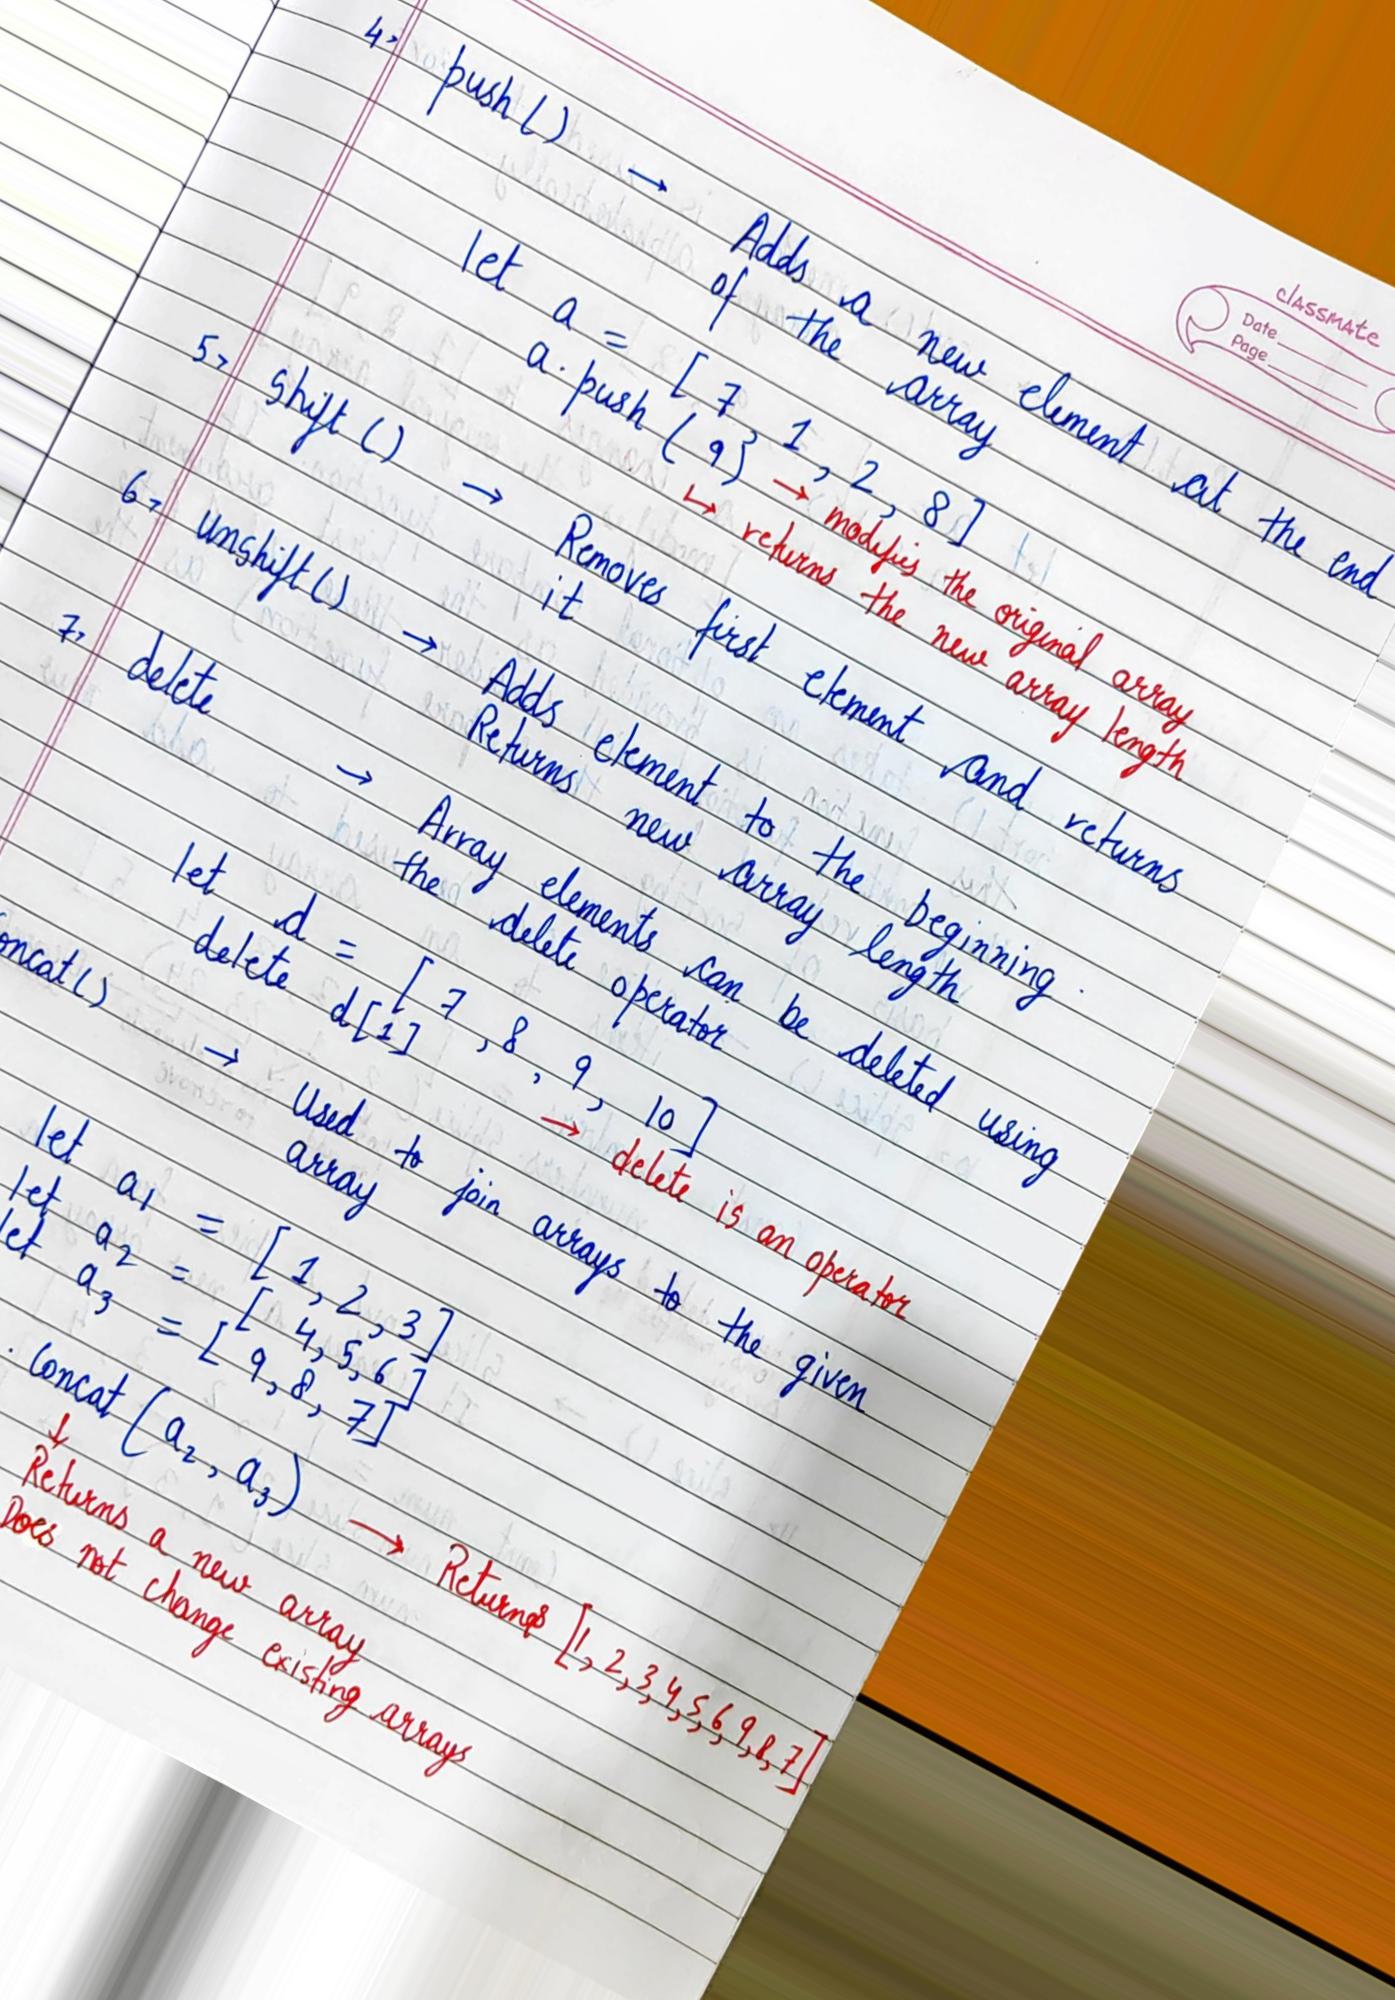 classmate
Date
Page
4, push() → Adds a new element at the end
of the array
let a = [7, 1, 2, 8]
a.push(9) → modifies the original array
↳ returns the new array length
5, shift() → Removes first element and returns
it
6, unshift() → Adds element to the beginning.
Returns new array length
7, delete → Array elements can be deleted using
the delete operator
let d = [7, 8, 9, 10]
delete d[1] → delete is an operator
oncat() → Used to join arrays to the given
array
let a1 = [1, 2, 3]
let a2 = [4, 5, 6]
let a3 = [9, 8, 7]
.concat(a2, a3) → Returns [1, 2, 3, 4, 5, 6, 9, 8, 7]
↓
Returns a new array
Does not change existing arrays